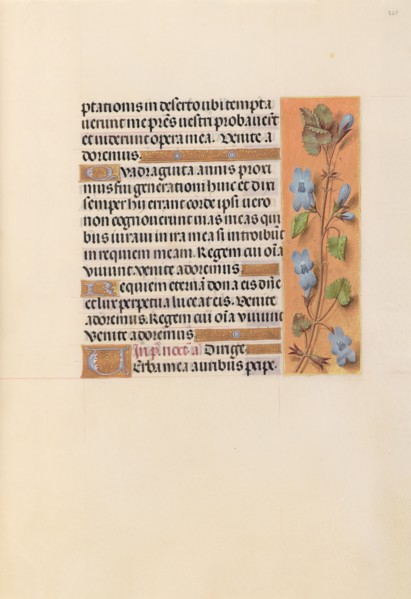 ptationis in deserto ubi tempta
verunt me prēs vestri probavert
et viderunt opera mea. Venite a
doremus.
Quadraginta annis proxi
mus fui generationi huic et dixi
semper hij errant corde ipsi vero
non cognoverunt vias meas qui
bus iuravi in ira mea si introibūt
in requiem meam. Regem cui oīa
vivunt venite adoremus
Requiem eternā dona eis dñe
et lux perpetua luceat eis. Venite
adoremus. Regem cui oīa vivunt
Venite adoremus
In p. noct. a. Dirige.
Verba mea auribus pcipe.